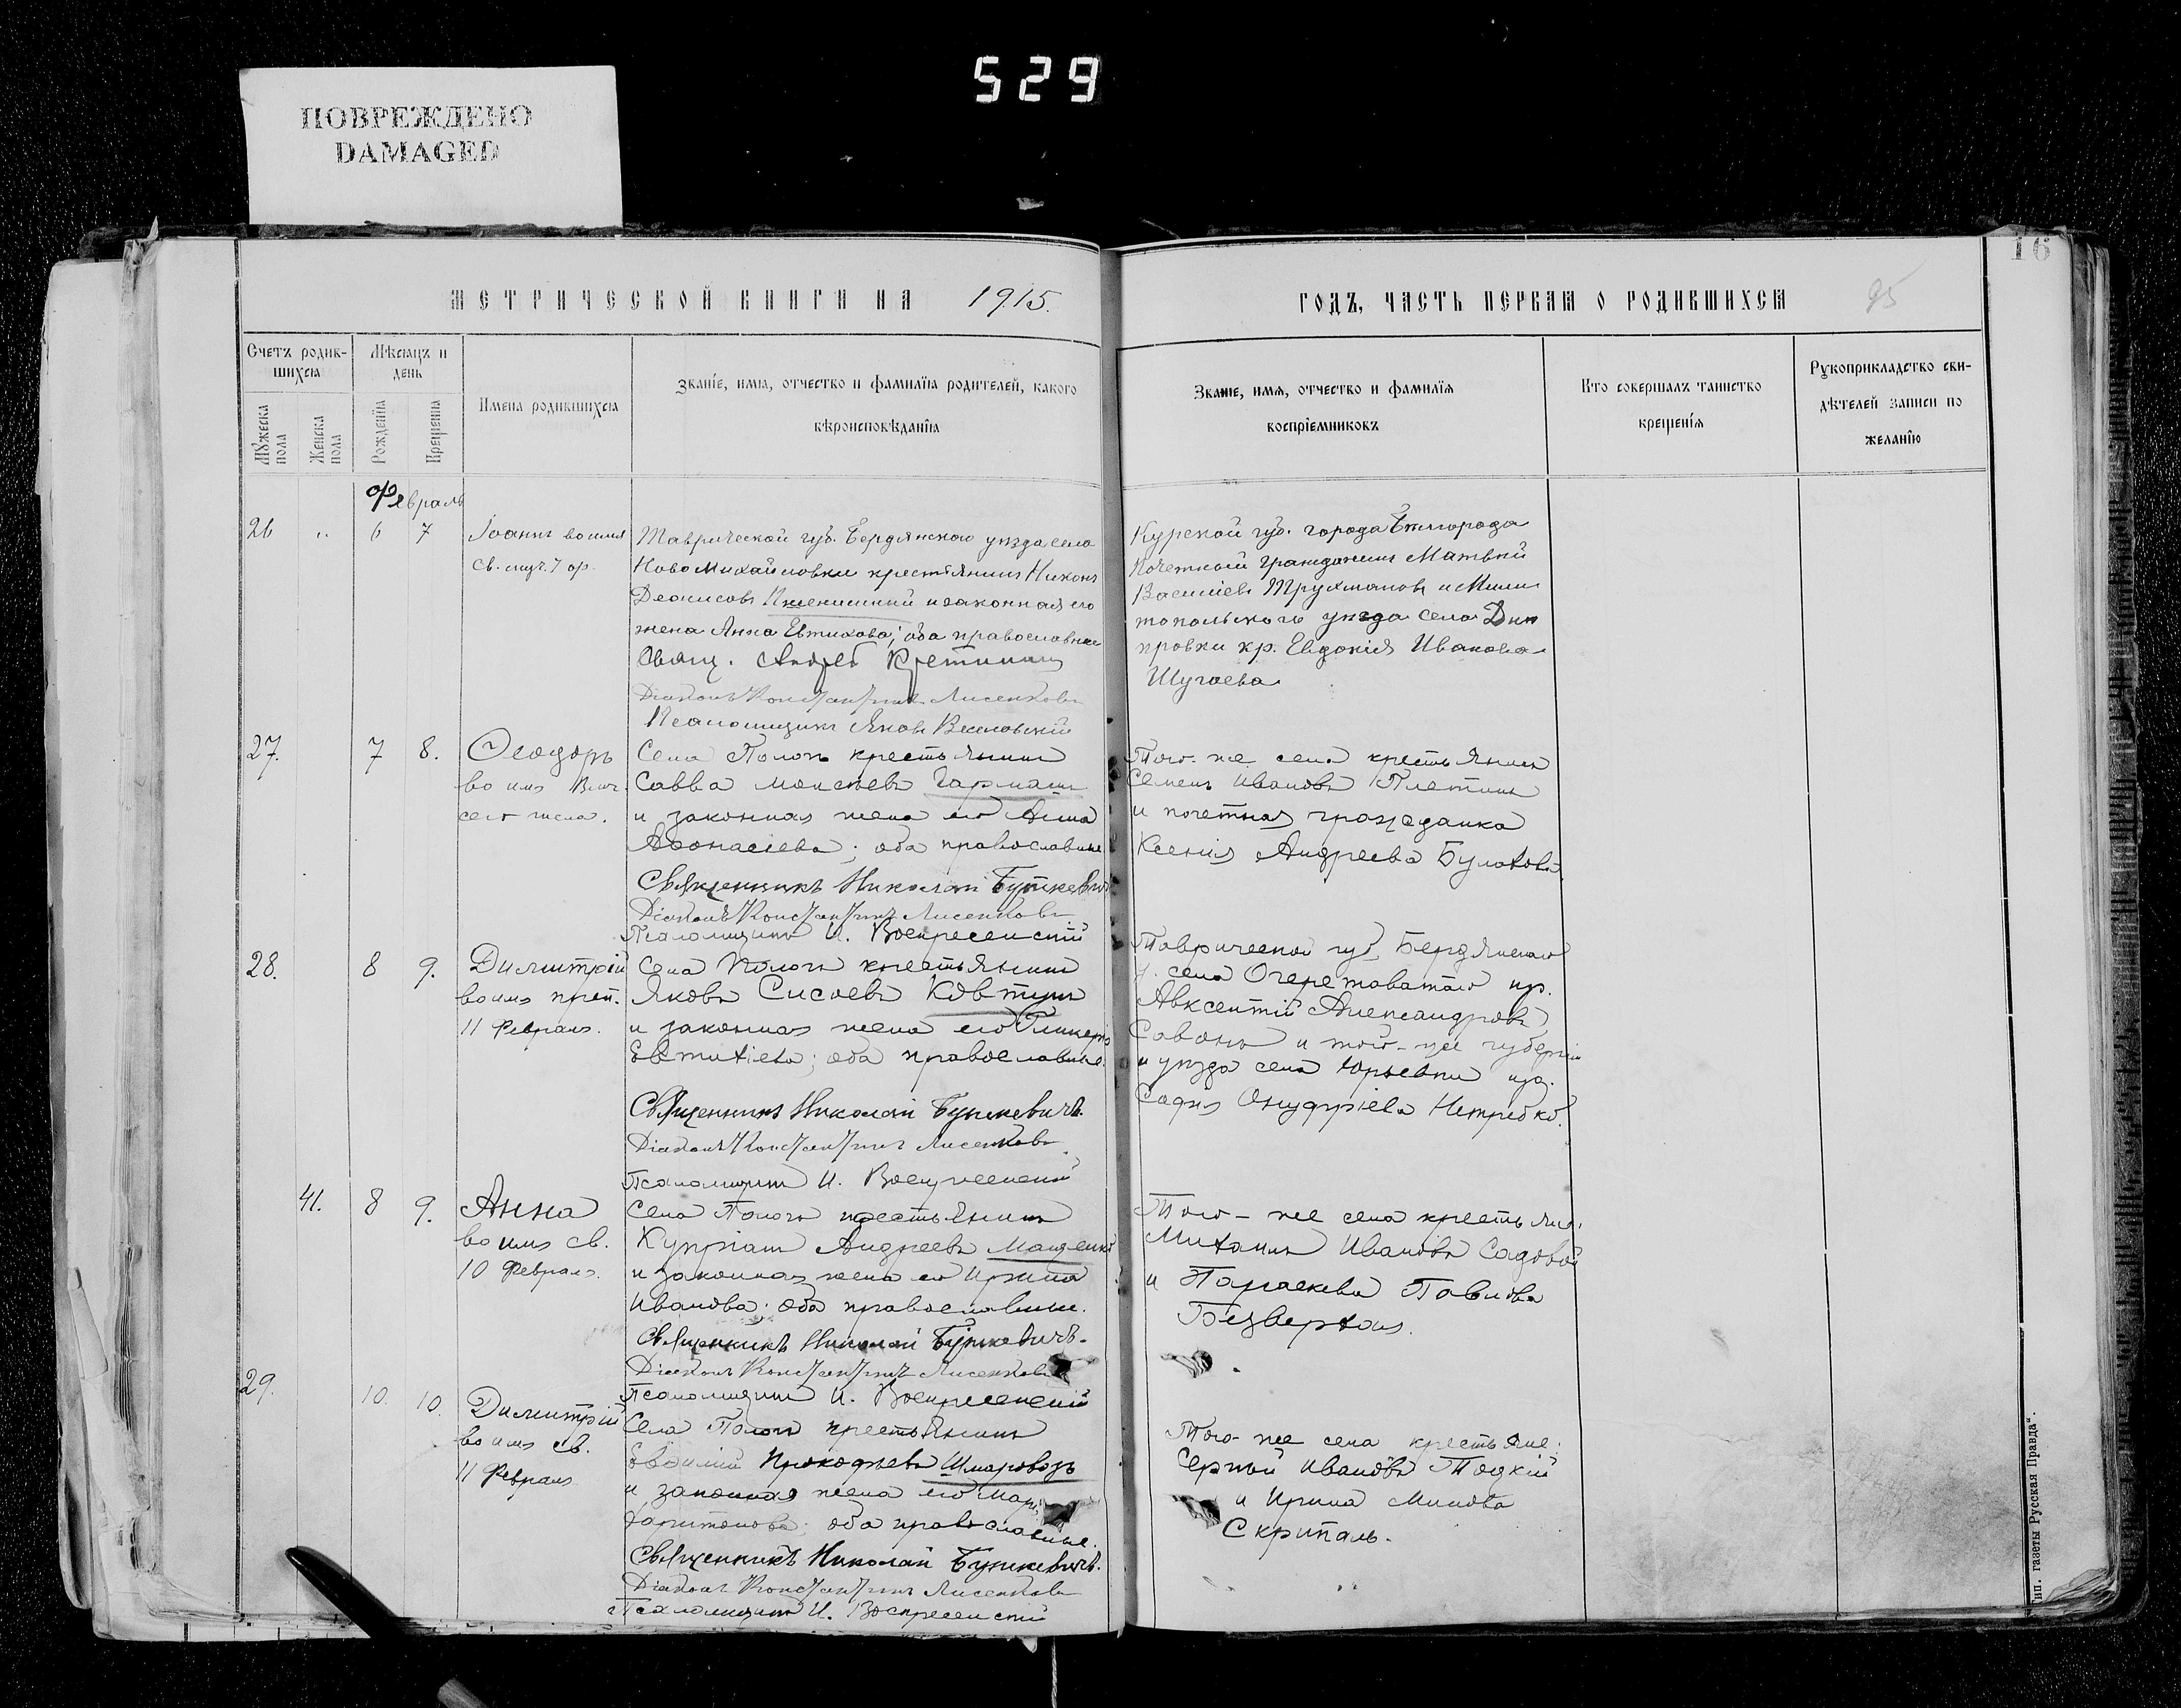 529
ПОВРЕЖДЕНО
DAMAGED
16
95
МЕТРИЧЕСКОЙ КНИГИ НА 1915.
ГОДЪ, ЧАСТЬ ПЕРВАЯ О РОДИВШИХСЯ
Счетъ родив-
шихся
Мѣсяцъ и
день
Мужеска
пола
Женска
пола
Рожденїя
Крещенїя
Имена родившихся
Званїе, имя, отчество и фамилїя родителей, какого
вѣроисповѣданїя
Званїе, имя, отчество и фамилїя
воспрїемниковъ
Кто совершалъ таинство
крещенїя
Рукоприкладство сви-
дѣтелей записи по
желанїю
Февраль
26 " 6 7
Іоаннъ во имя
св. муч. 7 ф.
Таврической губ. Бердянскаго уѣзда села
Ново Михайловки крестьянинъ Никонъ
Деонисовъ Пшеничный и законная его
жена Анна Евтихова; оба православные
Свящ. Андрей
Діаконъ Константинъ Лисенковъ
Псаломщикъ Яковъ
Курской губ. города Бѣлгорода
Почетный гражданинъ Матвѣй
Васильевъ Трухмановъ и Мели
топольскаго уѣзда села Днѣ
провки кр. Евдокія Иванова
Шугаева
27. 7 8.
Ѳеодоръ
во имя
сего числа.
Села Пологъ крестьянинъ
Савва Моисеевъ Гармашъ
и законная жена его Анна
Аѳонасіева; оба православные
Священникъ Николай Буткевичъ
Діаконъ Константинъ Лисенковъ
Псаломщикъ И. Воскресенскій
Того-же села крестьянинъ
Семенъ Ивановъ Плетинь
и почетная гражданка
Ксенія Андреева Булахова
28. 8 9.
Димитрій
во имя преп.
11 Февраля.
Села Пологъ крестьянинъ
Яковъ Сисоевъ Ковтунъ
и законная жена его Гликерія
Евтихіева; оба православные.
Священникъ Николай Буткевичъ.
Діаконъ Константинъ Лисенковъ
Псаломщикъ И. Воскресенскій
Таврической губ. Бердянскаго
у. села Очеретоватаго кр.
Авксентій Александровъ
Савонъ и той-же губерніи
и уѣзда села Юрьевки кр.
Софія Онуфріева Нетребко.
41. 8 9.
Анна
во имя св.
10 Февраля.
Села Пологъ крестьянинъ
Купріанъ Андреевъ Мащенко
и законная жена его Ирина
Иванова; оба православные.
Священникъ Николай Буткевичъ.
Діаконъ Константинъ Лисенковъ
Псаломщикъ И. Воскресенскій
Того-же села крестьяне:
Михаилъ Ивановъ Садовой
и Параскева Павлова
Безверхая.
29. 10. 10.
Димитрій
во имя св.
11 Февраля
Села Пологъ крестьянинъ
Евѳимій Прокофьевъ Шмаровозъ
и законная жена его Марія
Харитонова; оба православные.
Священникъ Николай Буткевичъ.
Діаконъ Константинъ Лисенковъ
Псаломщикъ И. Воскресенскій
Того-же села крестьяне:
Сергѣй Ивановъ Тоцкій
и Ирина Минова
Скрипаль.
Тип. газеты Русская Правда".